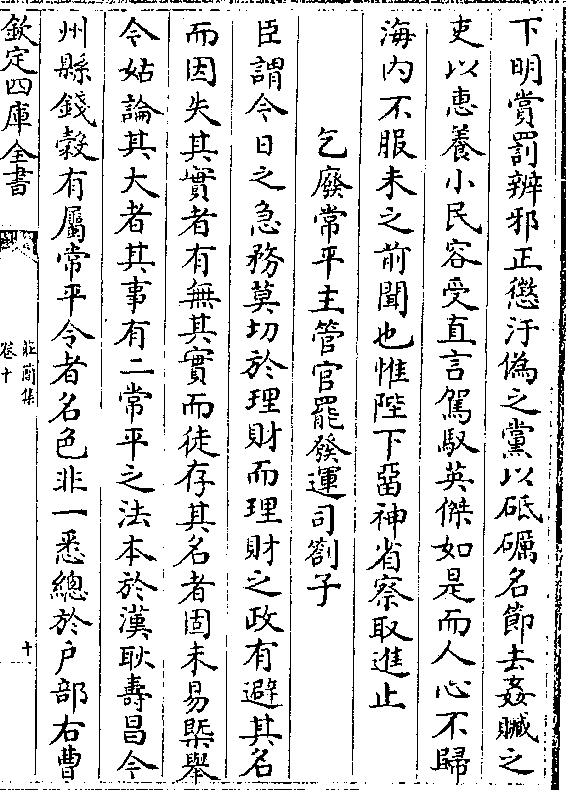 下明賞罰辨邪正懲汙偽之黨以砥礪名節去姦贓之
吏以惠養小民容受直言駕馭英傑如是而人心不歸
海内不服未之前聞也惟陛下留神省察取進止
乞廢常平主管官罷發運司劄子
臣謂今日之急務莫切於理財而理財之政有避其名
而因失其實者有無其實而徒存其名者固未易槩舉
今姑論其大者其事有二常平之法本於漢耿壽昌今
州縣錢穀有屬常平令者名色非一悉總於户部右曹
欽定四庫全書
莊簡集
卷十
十